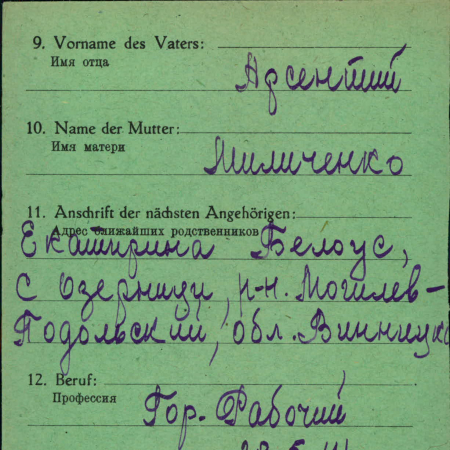 9. Vorname des Vaters:
Имя отца
Арсентий
10. Name der Mutter:
Имя матери
Миличенко
11. Anschrift der nächsten Angehörigen:
Адрес ближайших родственников
Екатирина Белоус,
с Озерници, р-н. Могилев-
Подольский, обл. Винницко
12. Beruf:
Профессия
Гор. Рабочий